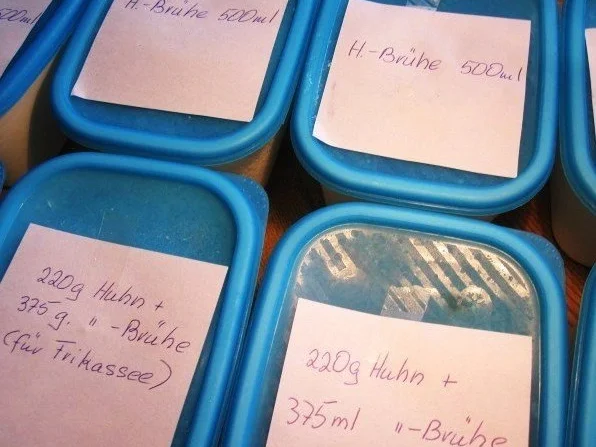 500ml
H.-Brühe 500ml
H.-Brühe 500ml
220g Huhn +
375g. " -Brühe
(für Frikassee)
220g Huhn +
375ml "-Brühe